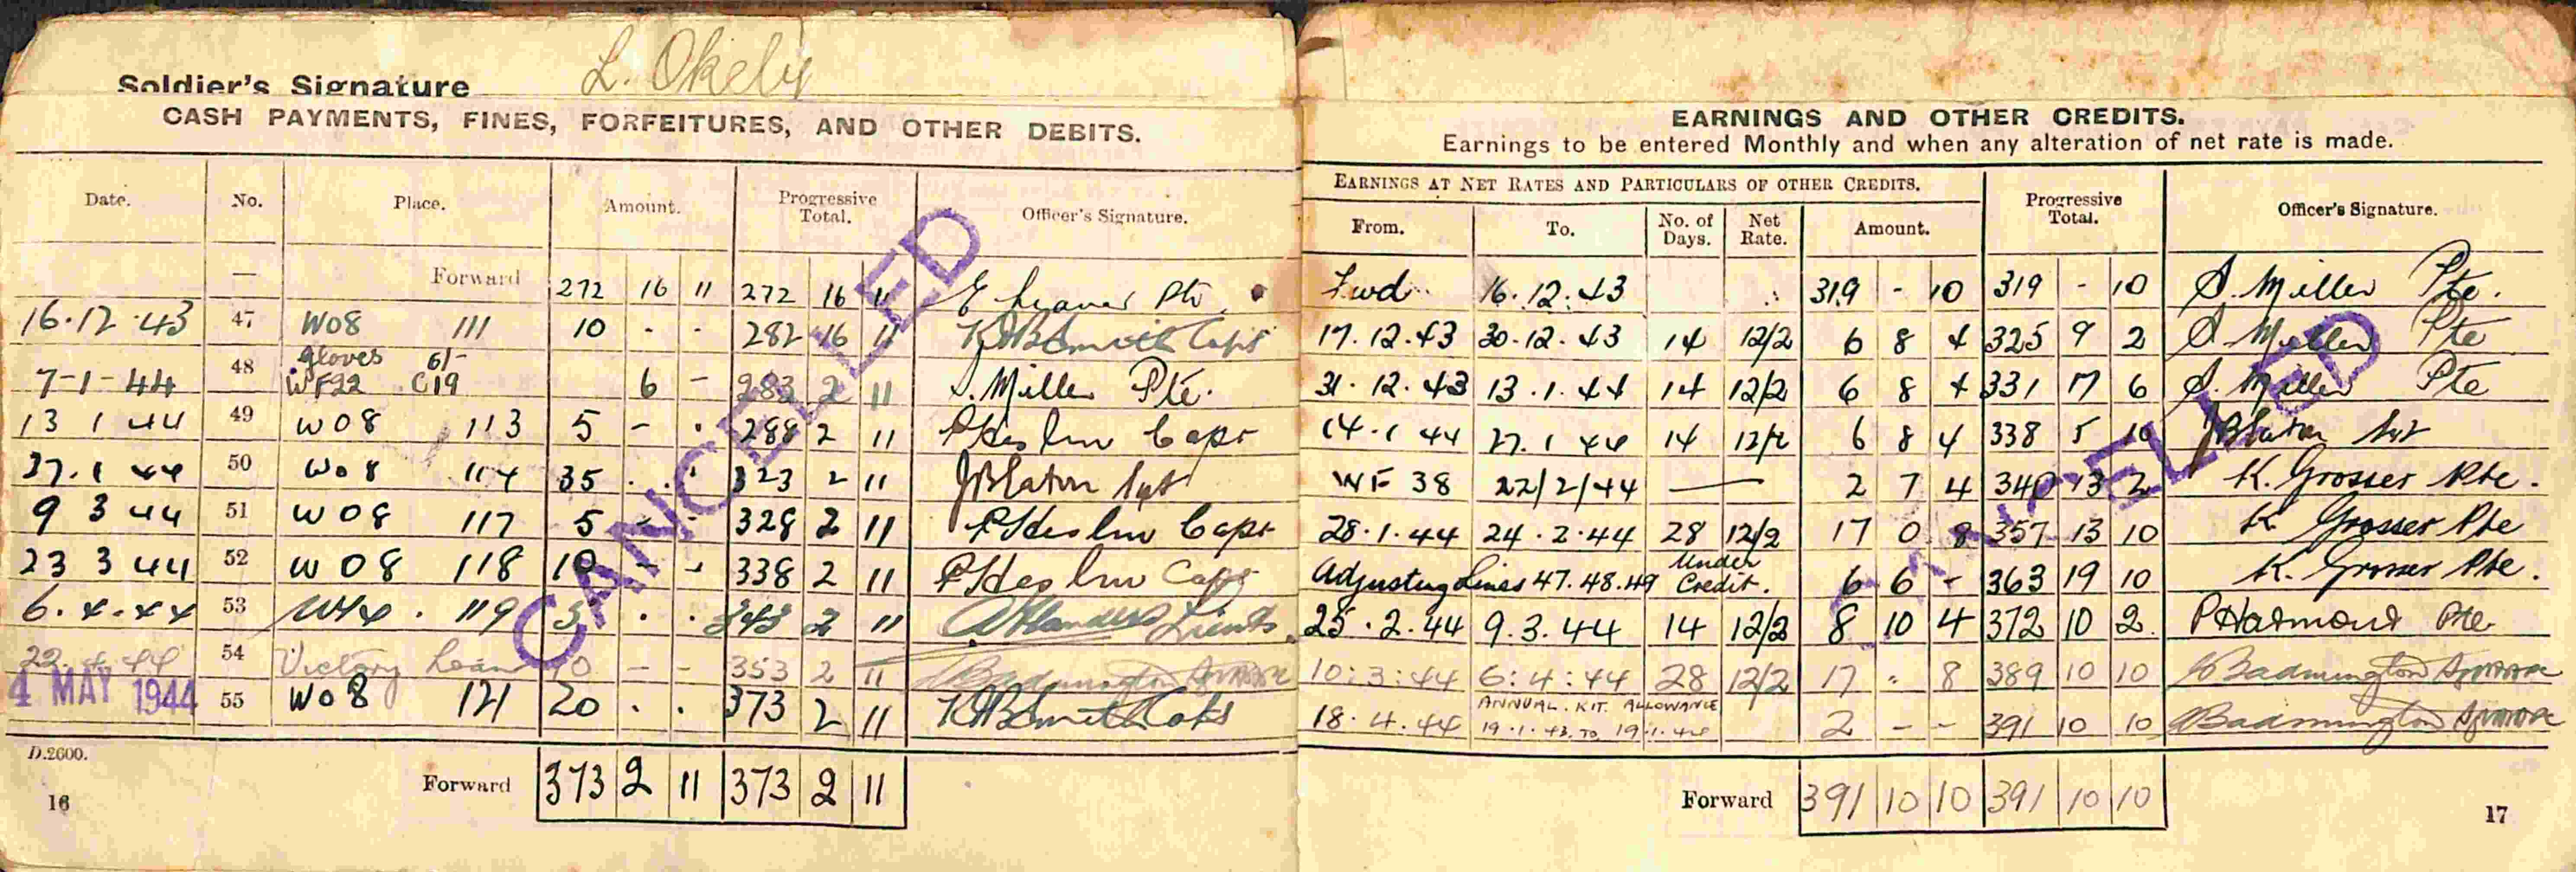 Soldier's Signature L. Okely
CASH PAYMENTS, FINES, FORFEITURES, AND OTHER DEBITS.
Date. No. Place. Amount. Progressive Total. Officer's Signature.
— Forward 272 16 11 272 16 11 Pte
16.12.43 47 W08 111 10 . . 282 16 11 Smith Capt
gloves 6/-
7-1-44 48 WF22 C19 6 - 283 2 11 S. Miller Pte.
13 1 44 49 W08 113 5 - . 288 2 11 Capt
27.1 44 50 W08 114 35 . . 323 2 11 Sgt
9 3 44 51 W08 117 5 - - 328 2 11 Capt
23 3 44 52 W08 118 10 - - 338 2 11 Capt
6.4.44 53 119 5 . . 343 2 11 Lieut
22.4.44 54 Victory Loan 10 - - 353 2 11 Badmington
4 MAY 1944 55 W08 121 20 . . 373 2 11 Smith Capt
CANCELLED
D.2600.
Forward 373 2 11 373 2 11
16
EARNINGS AND OTHER CREDITS.
Earnings to be entered Monthly and when any alteration of net rate is made.
EARNINGS AT NET RATES AND PARTICULARS OF OTHER CREDITS.
From. To. No. of Days. Net Rate. Amount. Progressive Total. Officer's Signature.
Fwd 16.12.43 319 - 10 319 - 10 S. Miller Pte.
17.12.43 30.12.43 14 12/2 6 8 4 325 9 2 S. Miller Pte
31.12.43 13.1.44 14 12/2 6 8 4 331 17 6 S. Miller Pte
14.1 44 27.1 44 14 12/2 6 8 4 338 5 10 Sgt
WF 38 22/2/44 — 2 7 4 340 13 2 K. Grosser Pte.
28.1.44 24.2.44 28 12/2 17 0 8 357 13 10 K Grosser Pte
Adjusting Lines 47.48.49 Under Credit. 6 6 - 363 19 10 K. Grosser Pte.
25.2.44 9.3.44 14 12/2 8 10 4 372 10 2 P Harmond Pte
10:3:44 6:4:44 28 12/2 17 - 8 389 10 10 Badmington
ANNUAL. KIT. ALLOWANCE
18.4.44 19.1.43. TO 19.1.44 2 - - 391 10 10 Badmington
CANCELLED
Forward 391 10 10 391 10 10
17